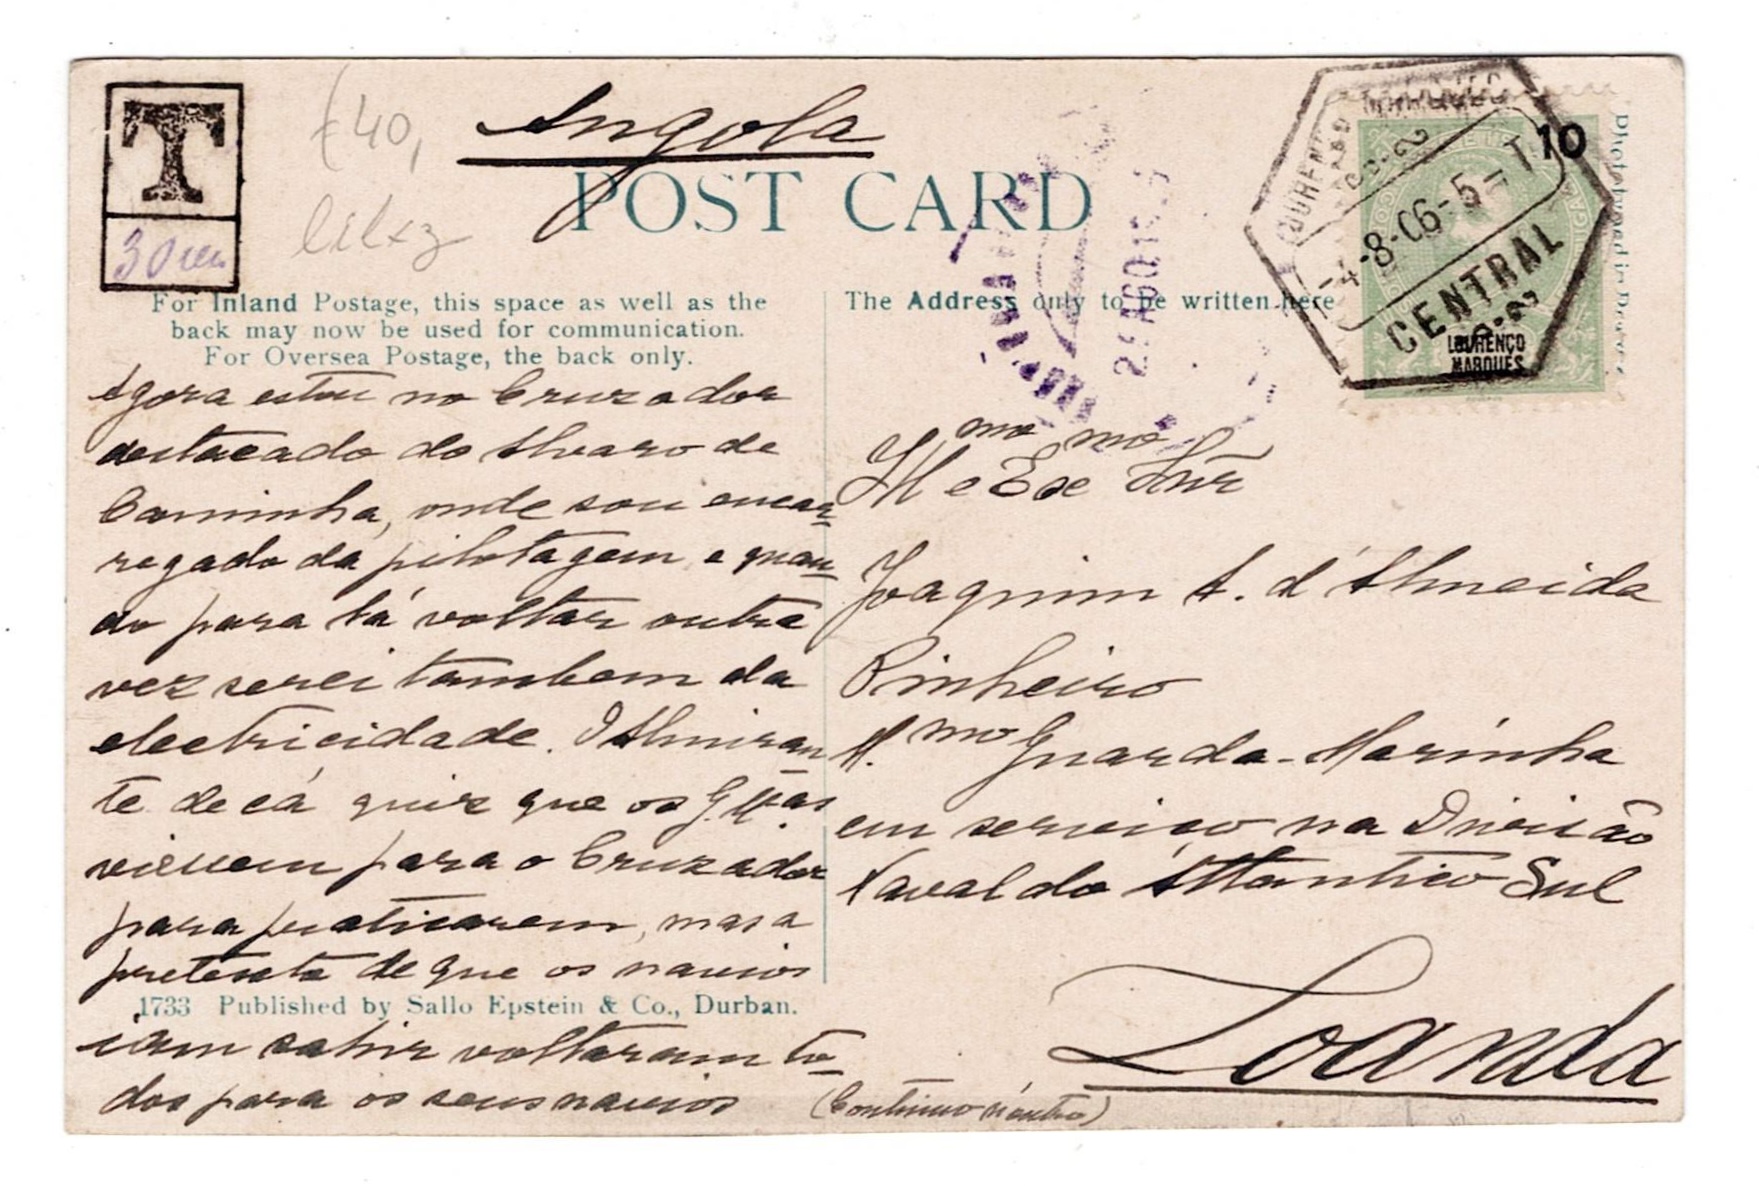 T
30 reis
€40,
Angola
POST CARD
10
CENTRAL
4-8-06-5-T
LOURENÇO
MARQUES
For Inland Postage, this space as well as the
back may now be used for communication.
For Oversea Postage, the back only.
The Address only to be written here
Agora estou no Cruzador
destacado do Alvaro de
Caminha, onde sou encar-
regado da pilotagem e quan-
do para lá voltar outra
vez serei tambem da
electricidade. O Almiran
te de cá quiz que os G. M.as
viessem para o Cruzador
para praticarem, mas a
pretexto de que os navios
1733 Published by Sallo Epstein & Co., Durban.
iam sahir voltaram to-
dos para os seus navios
(Continuo n'outro)
Ill mo e Exc mo Snr
Joaquim A. d'Almeida
Pinheiro
M. mo Guarda-Marinha
em serviço na Divisão
Naval do Atlantico Sul
Loanda